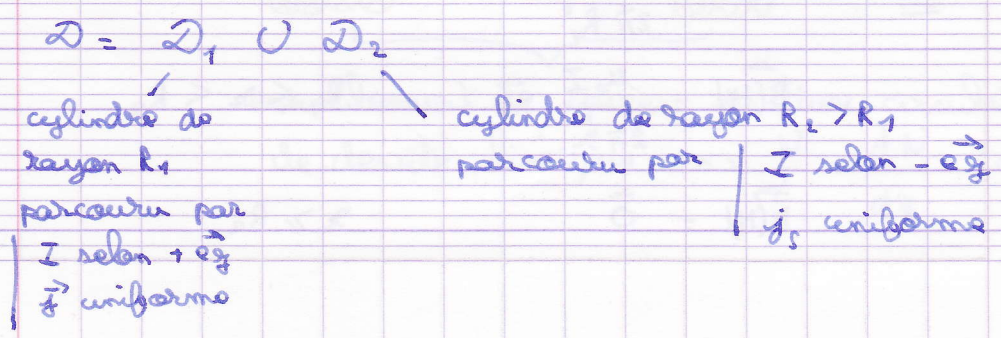 D = D₁ ∪ D₂
cylindre de
rayon R₁
parcouru par
I selon + e⃗z
j⃗ uniforme
cylindre de rayon R₂ > R₁
parcouru par
I selon - e⃗z
jₛ uniforme